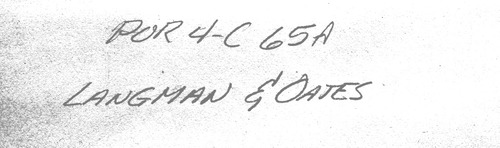 POR 4-C 65A
LANGMAN & OATES